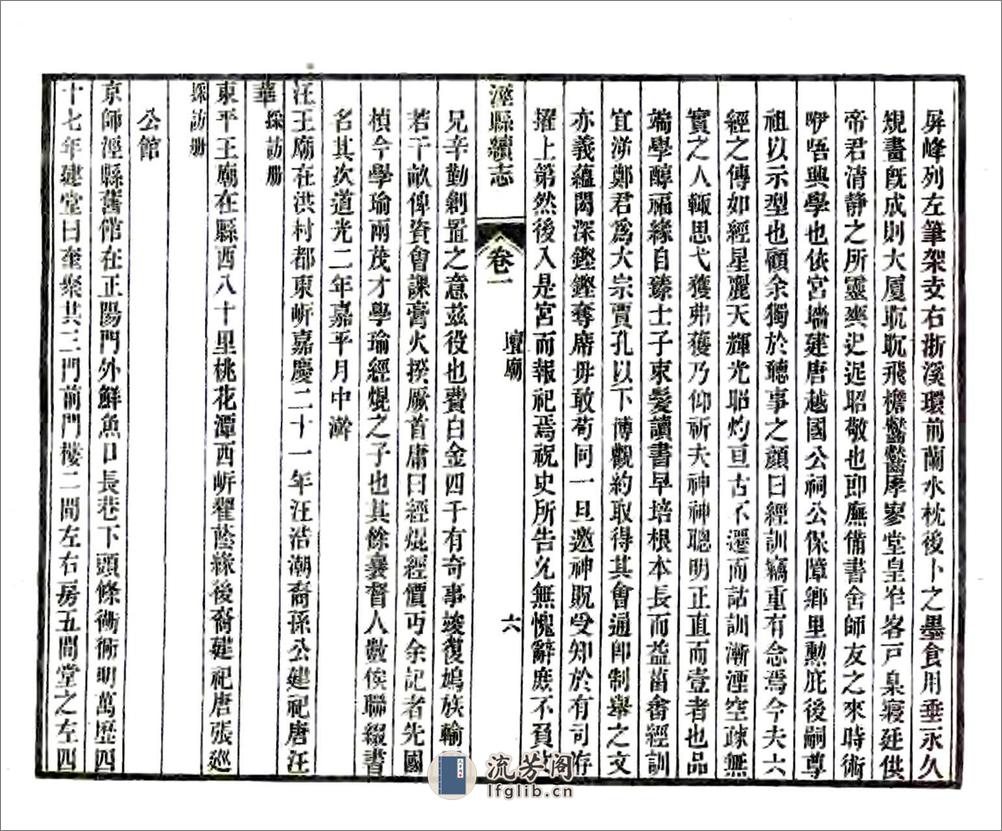 屏峰列左筆架支右浙溪環前蘭水枕後卜之墨食用垂永久
規畫既成則大厦耽耽飛檐齾齾厚寥堂皇岝㟯戸臬寢廷供
帝君清静之所靈爽史巫昭敬也卽廡備書舍師友之來時術
咿唔興學也依宮墻建唐越國公祠公保障鄉里勲庇後嗣尊
祖以示型也顧余獨於聽事之顏曰經訓竊重有念焉今夫六
經之傳如經星麗天輝光昭灼亘古不遷而詁訓漸湮空疎無
實之人輙思弋獲弗獲乃仰祈夫神神聰明正直而壹者也品
端學醇福緣自臻士子束髮讀書早培根本長而菑畬經訓
宜涕鄭君爲大宗賈孔以下博觀約取得其會通卽制舉之文
亦義蘊閎深鏗鏗奪席毋敢苟同一旦邀神貺受知於有司存
擢上第然後入是宮而報祀焉祝史所告允無愧辭庶不負
涇縣續志
卷一
壇廟
六
兄辛勤創置之意兹役也費白金四千有奇事竣復鳩族輸
若干畝俾資會課膏火揆厥首庸曰經焜經價丐余記者先國
楨今學瑜兩茂才學瑜經焜之子也其餘襄督人數俟聯綴書
名其次道光二年嘉平月中澣
汪王廟在洪村都東岍嘉慶二十一年汪浩潮裔孫公建祀唐汪
華採訪册
東平王廟在縣西八十里桃花潭西岍翟藍緣後裔建祀唐張巡
採訪册
公館
京師涇縣舊館在正陽門外鮮魚口長巷下頭條衚衕明萬歷四
十七年建堂曰奎聚共三門前門樓二間左右房五間堂之左四
流芳阁
lfglib.cn